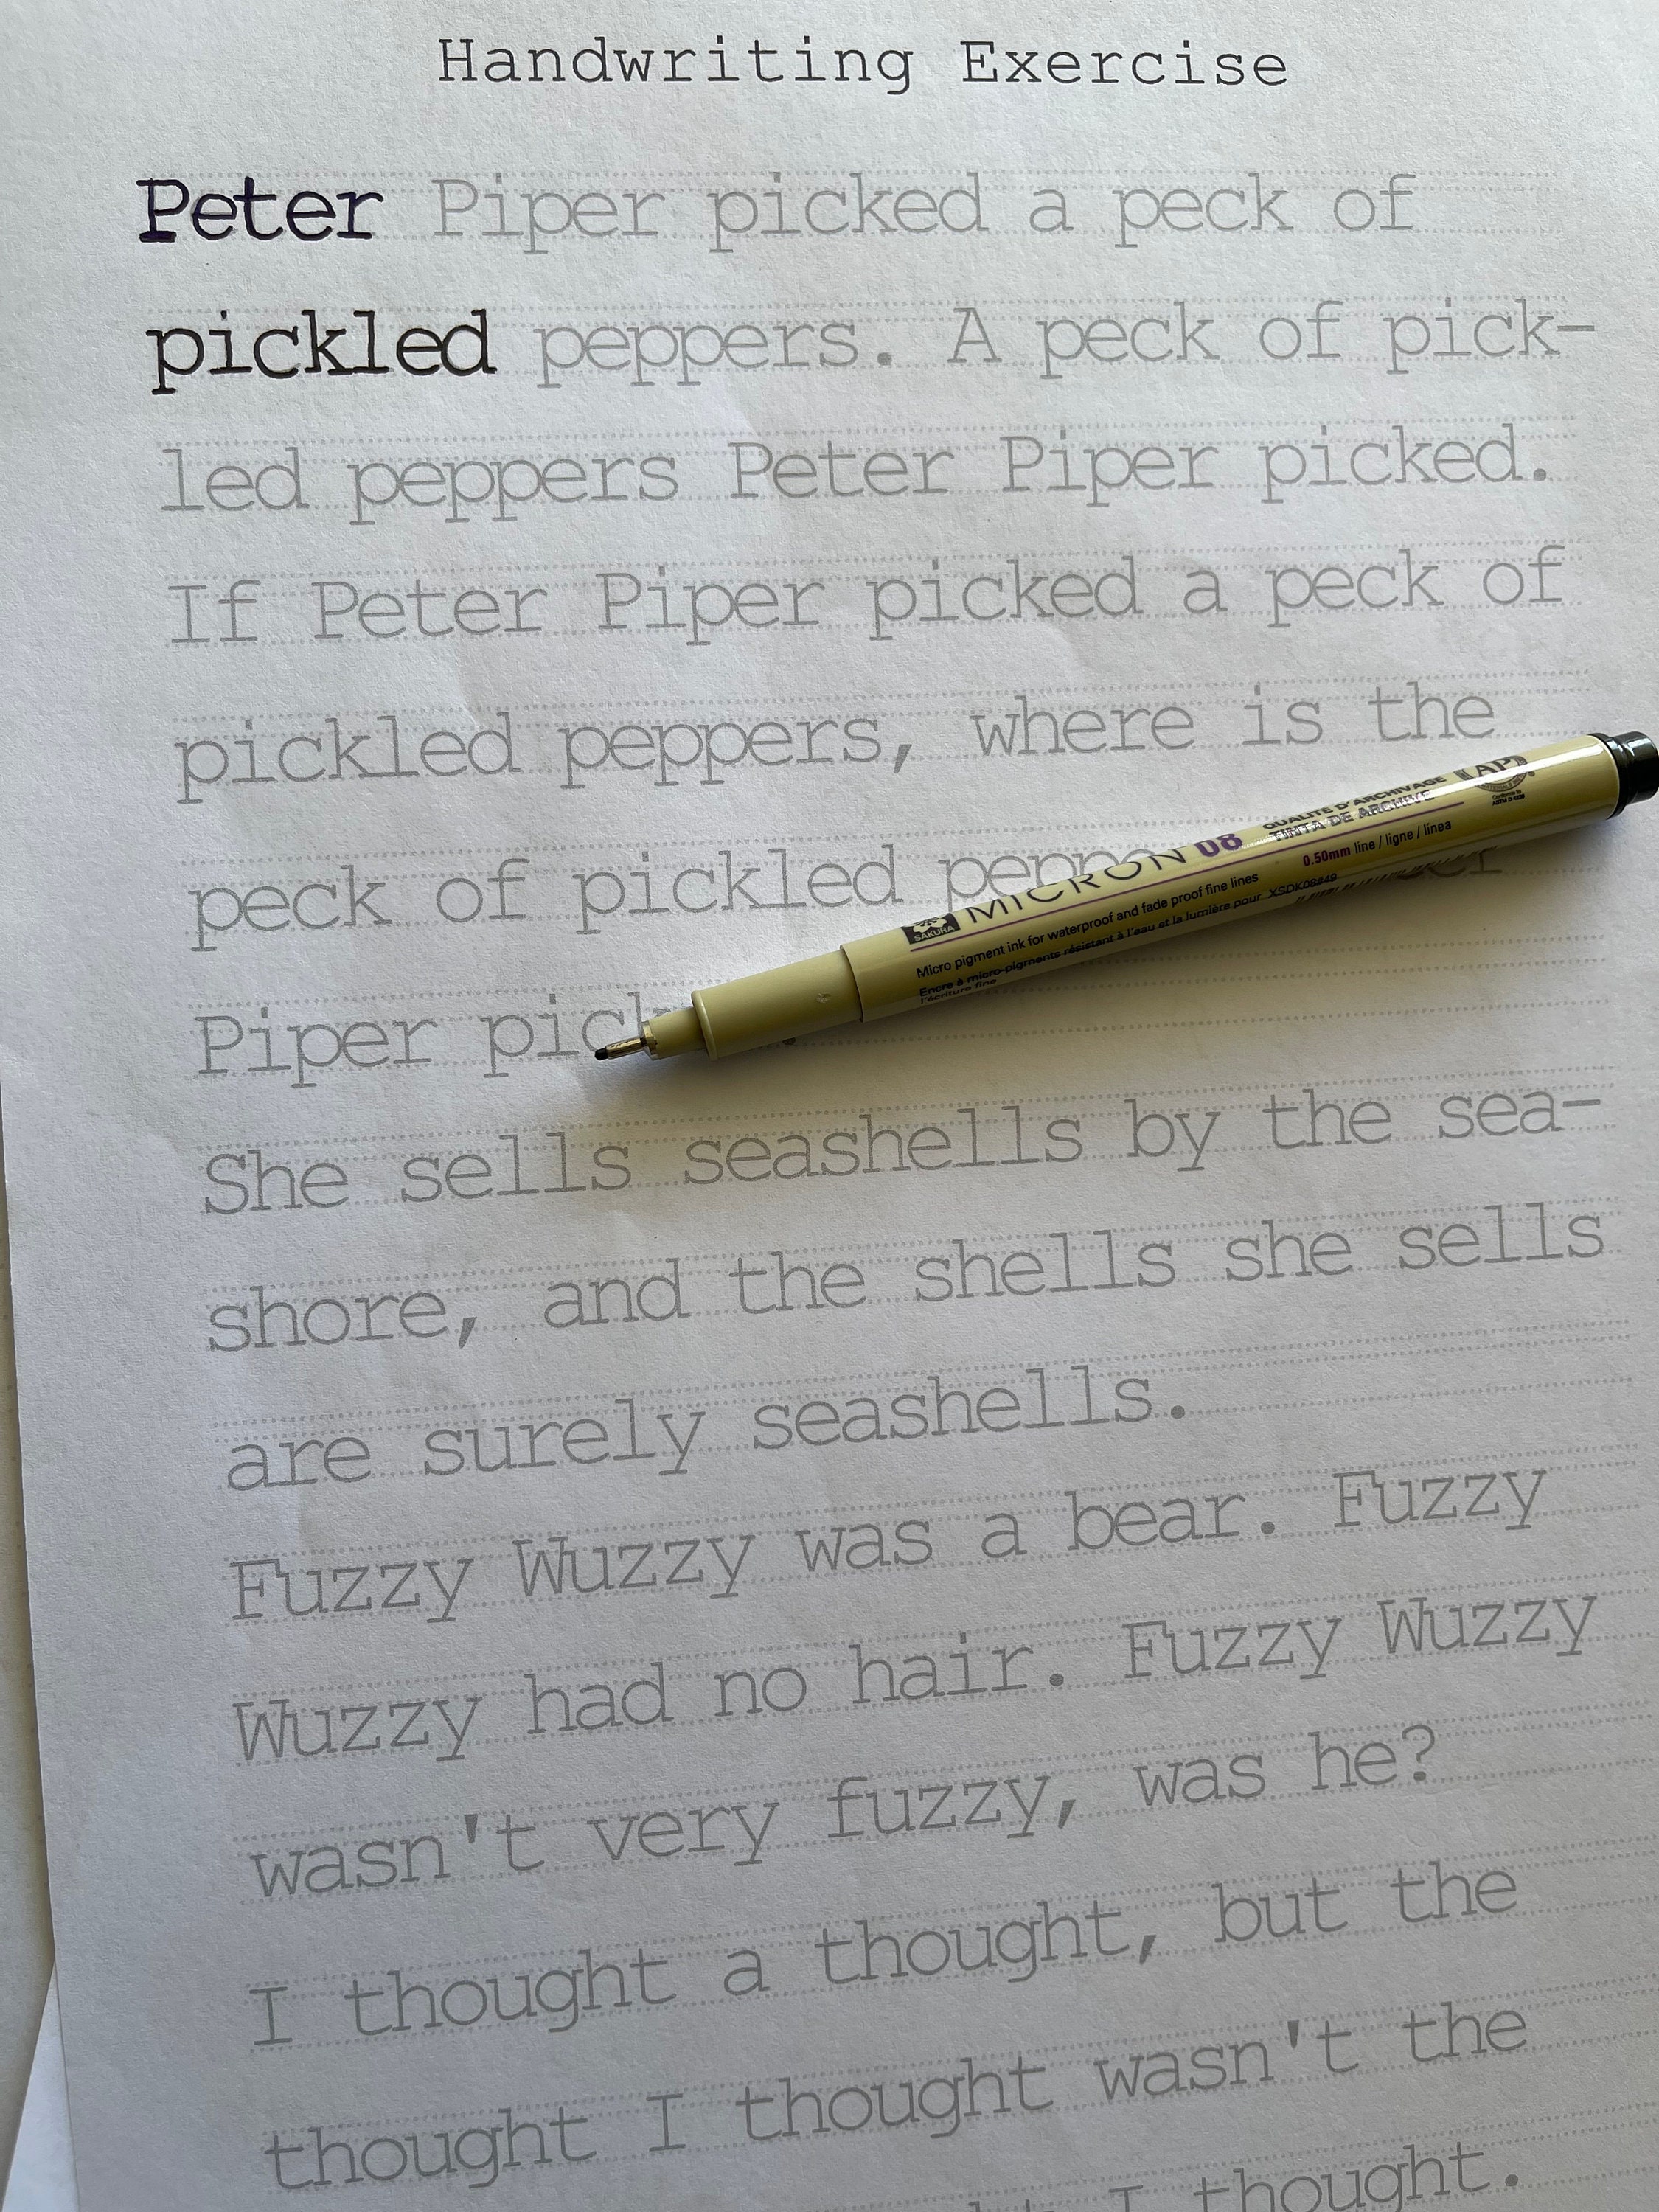 Handwriting Exercise
Peter Piper picked a peck of
pickled peppers. A peck of pick-
led peppers Peter Piper picked.
If Peter Piper picked a peck of
pickled peppers, where is the
peck of pickled
Piper
She sells seashells by the sea-
shore, and the shells she sells
are surely seashells.
Fuzzy Wuzzy was a bear. Fuzzy
Wuzzy had no hair. Fuzzy Wuzzy
wasn't very fuzzy, was he?
I thought a thought, but the
thought I thought wasn't the
I thought.
SAKURA
MICRON 08
Micro pigment ink for waterproof and fade proof fine lines
Encre à micro-pigments résistant à l'eau et la lumière pour
l'écriture fine
XSDK08#49
0.50mm line / ligne / línea
QUALITÉ D'ARCHIVAGE
TINTA DE ARCHIVE
AP
Conforms to
ASTM D 4236